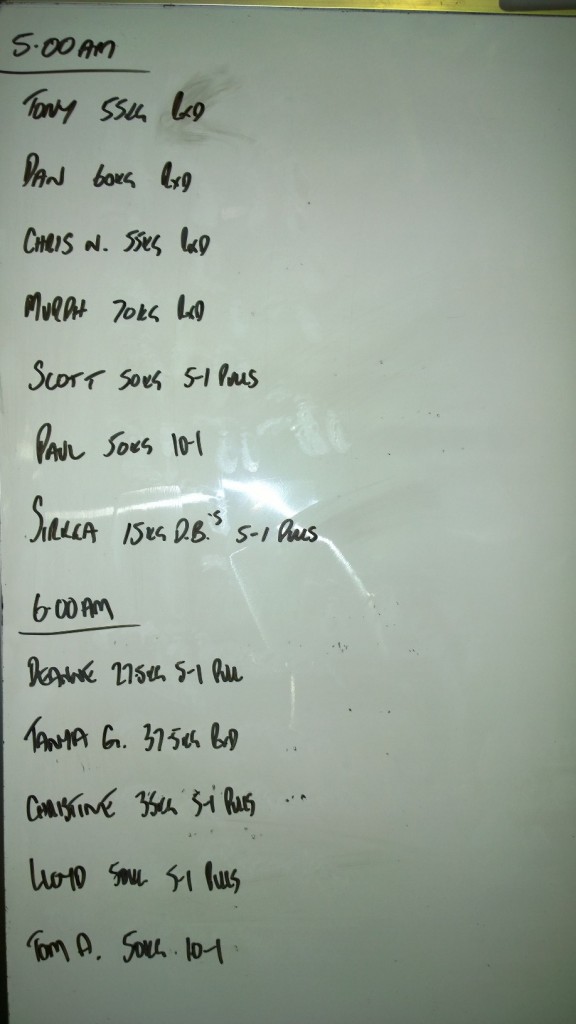 5:00AM
TONY 55KG RXD
DAN 60KG RXD
CHRIS N. 55KG RXD
MURPH 70KG RXD
SCOTT 50KG 5-1 PULLS
PAUL 50KG 10-1
SIRKKA 15KG D.B.'S 5-1 PULLS
6:00AM
DEANNE 27.5KG 5-1 PULL
TANYA G. 37.5KG RXD
CHRISTINE 35KG 5-1 PULLS
LLOYD 50KG 5-1 PULLS
TOM A. 50KG 10-1